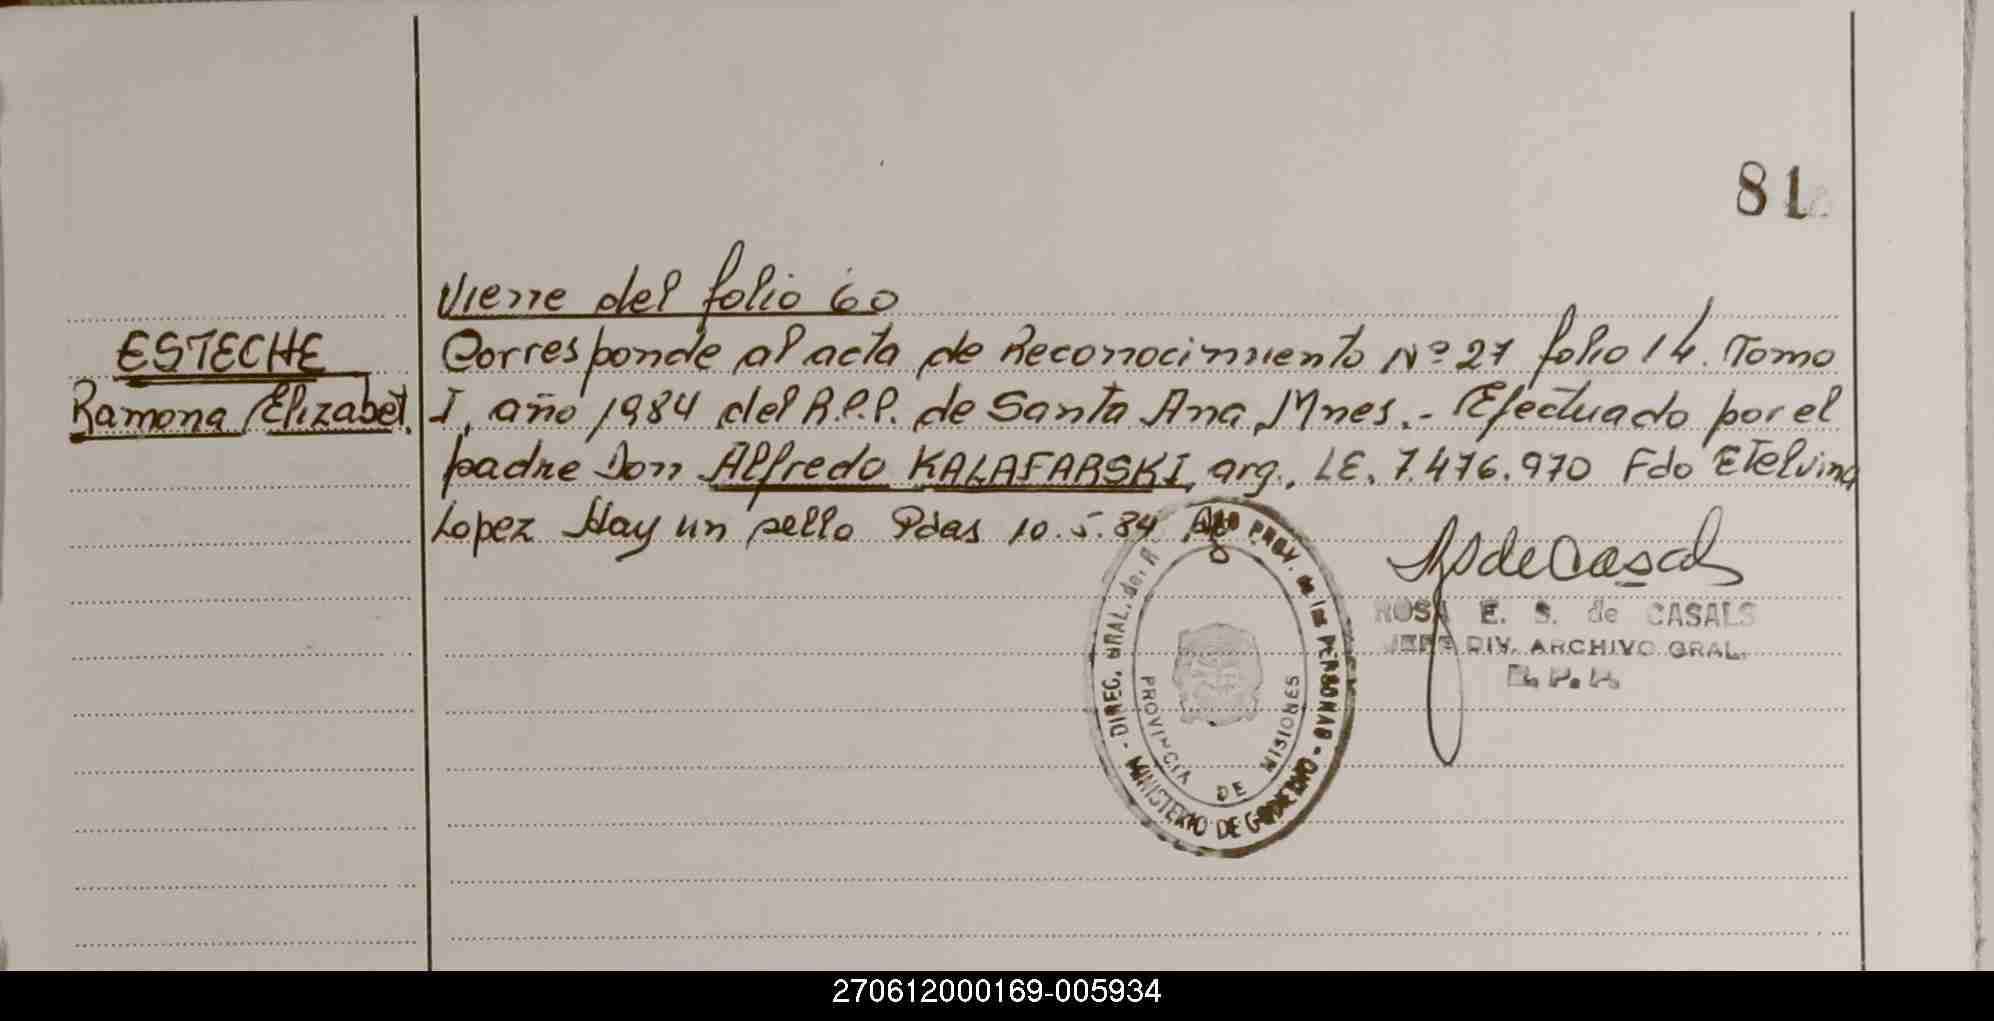 81
Viene del folio 60
ESTECHE
Ramona Elizabet.
Corresponde al acta de Reconocimiento Nº 27 folio 14. Tomo
I, año 1984 del R.P.P. de Santa Ana, Mnes.- Efectuado por el
padre Don Alfredo KALAFARSKI, arg., LE. 7.476.970 Fdo Etelvina
Lopez Hay un sello Pdas 10.5.84
ROSA E. S. de CASALS
JEFE DIV. ARCHIVO GRAL.
R. P. P.
DIREC. GRAL. de. R PROV. de las PERSONAS - MINISTERIO DE GOBIERNO -
PROVINCIA DE MISIONES
270612000169-005934